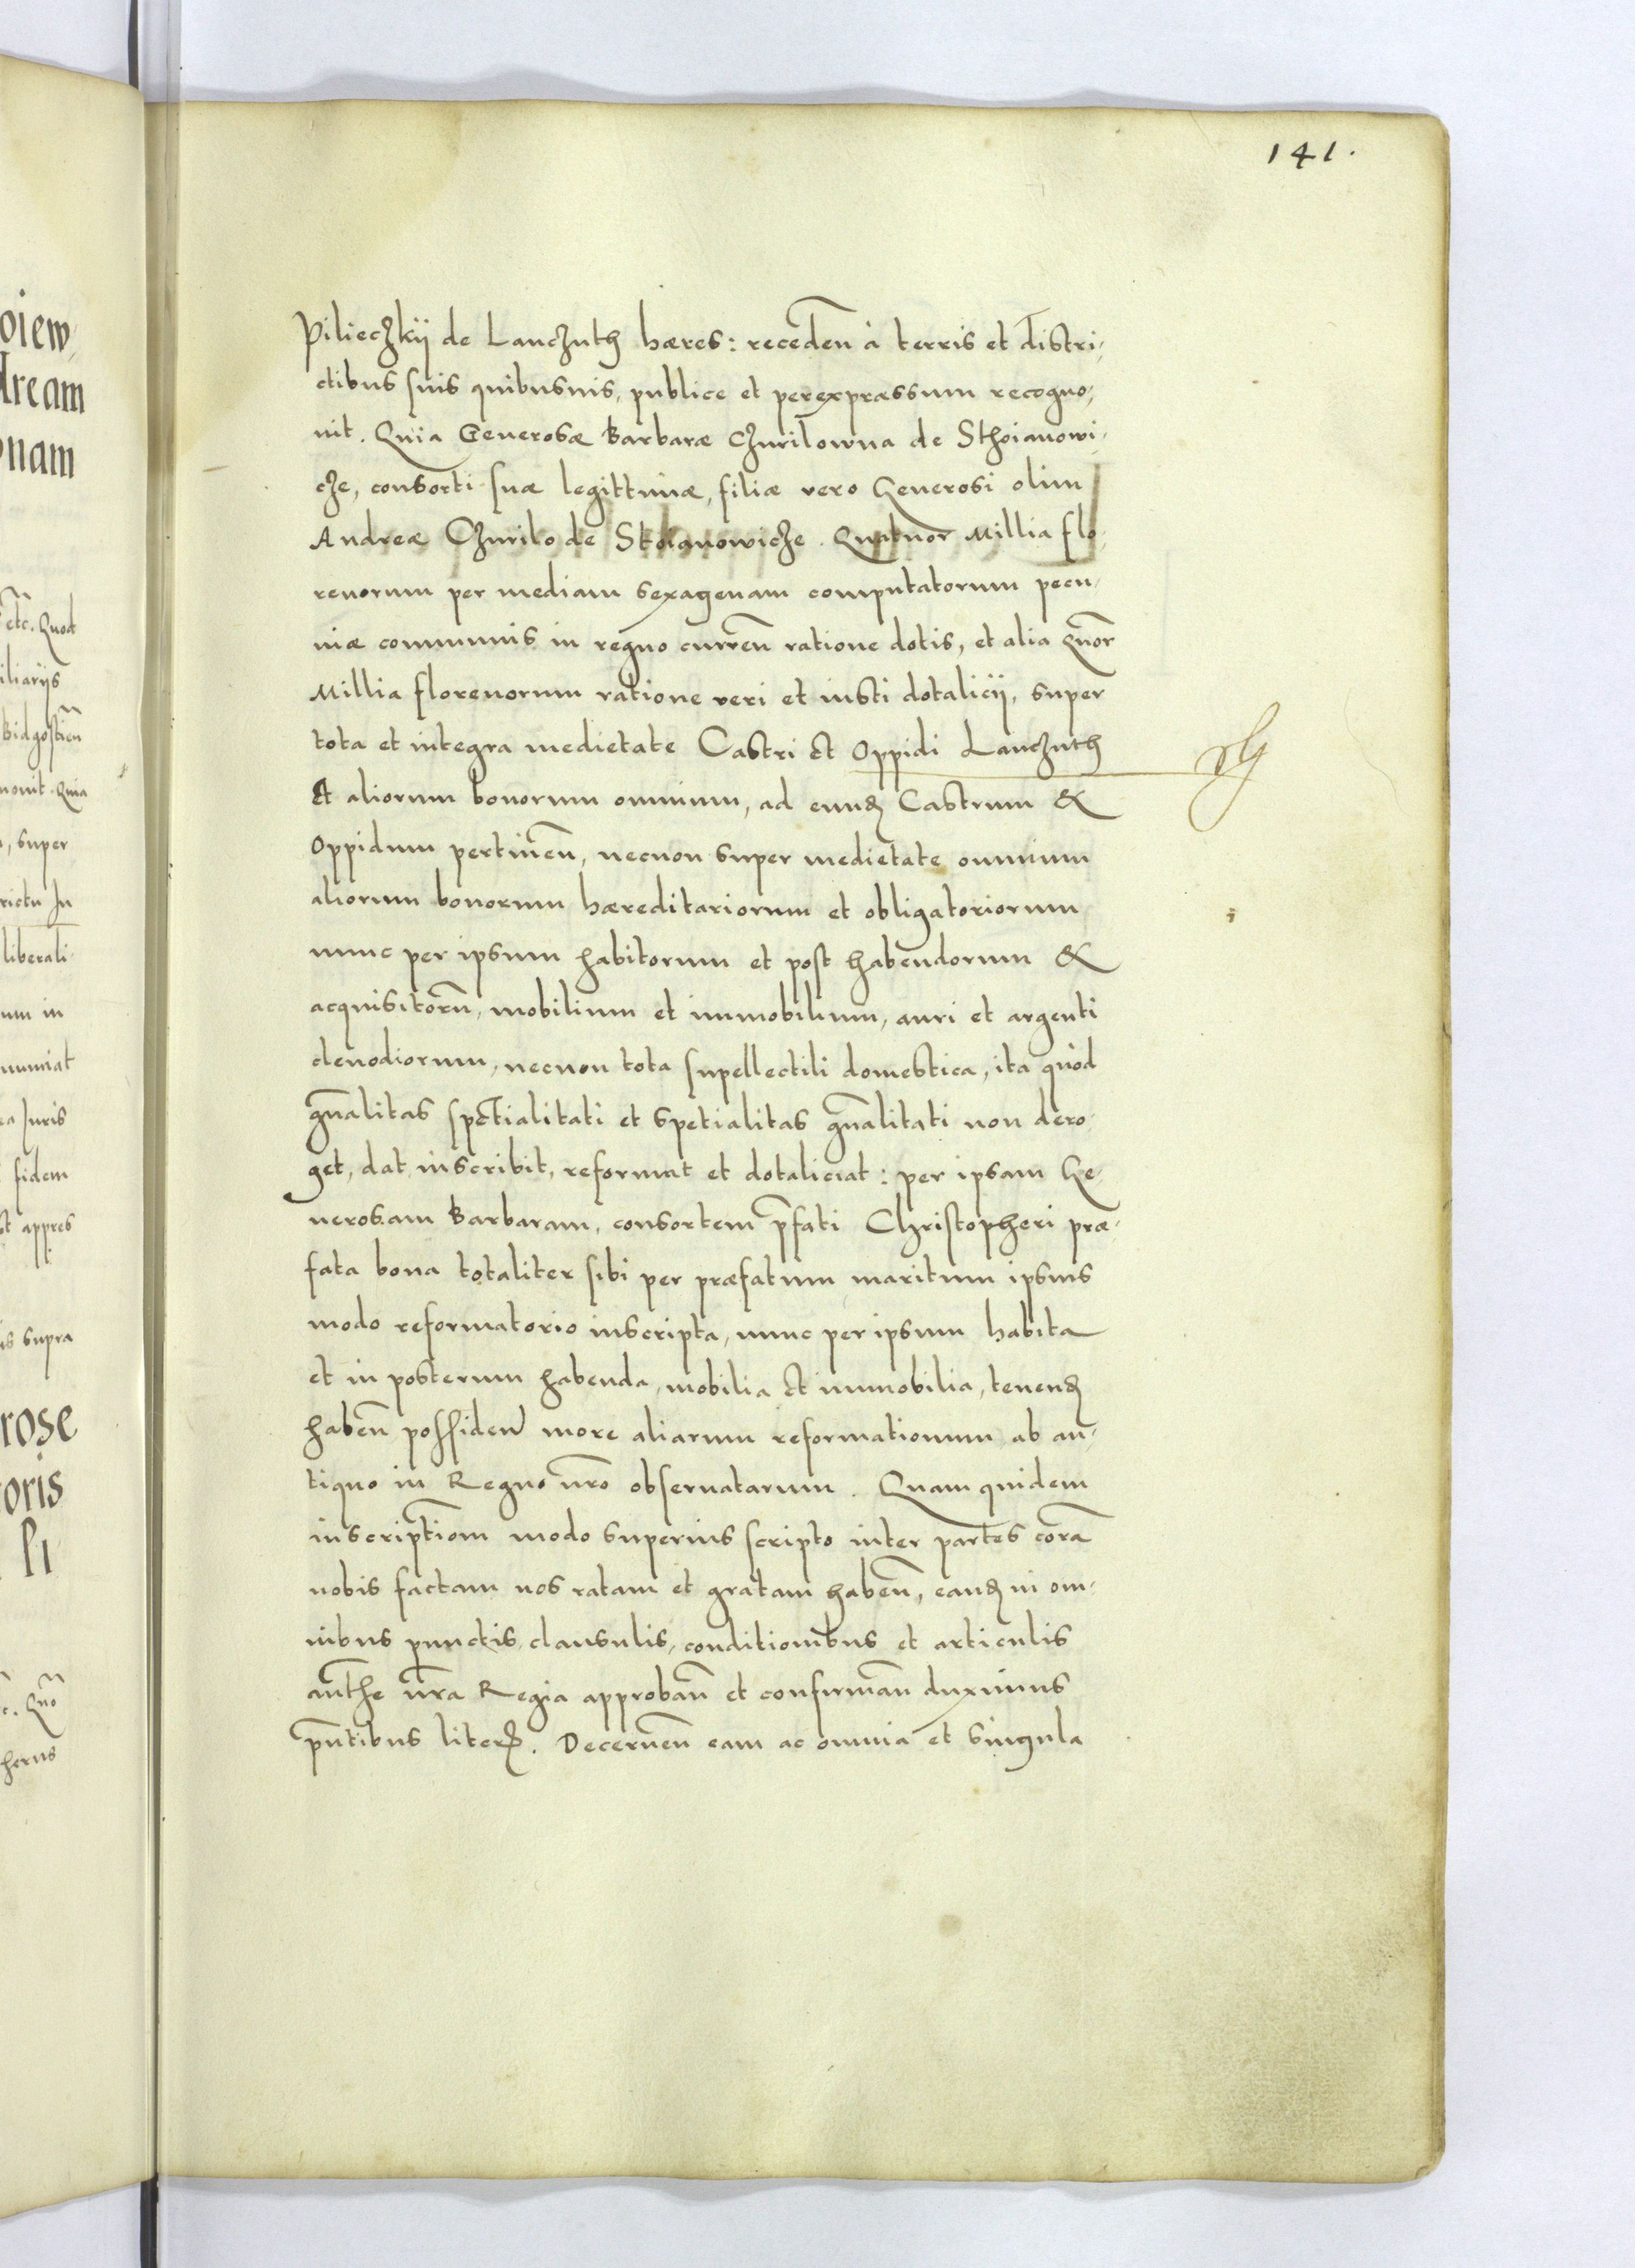 141.
Pilieczkij de Lanczuth hæres: receden̄ à terris et distri,
ctibus suis quibusuis, publice et per expræssum recogno,
uit. Quia Generosæ Barbaræ Czurilowna de Sthoianowi,
cze, consorti suæ legittimæ, filiæ vero Generosi olim
Andreæ Czurilo de Stoianowicze. Quatuor Millia flo,
renorum per mediam sexagenam computatorum pecu,
niæ communis in regno curren̄ ratione dotis, et alia Quōr
Millia florenorum ratione veri et iusti dotalicij, super
tota et integra medietate Castri et Oppidi Lanczuth
et aliorum bonorum omnium, ad eund Castrum &
Oppidum pertinen̄, necnon super medietate omnium
aliorum bonorum hæreditariorum et obligatoriorum
nunc per ipsum habitorum et post habendorum &
acquisitorū, mobilium et immobilium, auri et argenti
clenodiorum, necnon tota supellectili domestica, ita quòd
gn̄alitas spectialitati et spetialitas gn̄alitati non dero,
get, dat, inscribit, reformat et dotaliciat: per ipsam Ge,
nerosam Barbaram, consortem p̄fati Christopheri præ,
fata bona totaliter sibi per præfatum maritum ipsius
modo reformatorio inscripta, nunc per ipsum habita
et in posterum habenda, mobilia et immobilia, tenend
haben̄ possiden̄ more aliarum reformationum ab an,
tiquo in Regno nr̄o obseruatarum. Quam quidem
inscriptiōm modo superius scripto inter partes corā
nobis factam nos ratam et gratam haben̄, eand in om,
nibus punctis, clausulis, conditionibus et articulis
aut̄he nr̄a Regia approban̄ et confirman̄ duximus
pn̄tibus liter. Decernen̄ eam ac omnia et singula